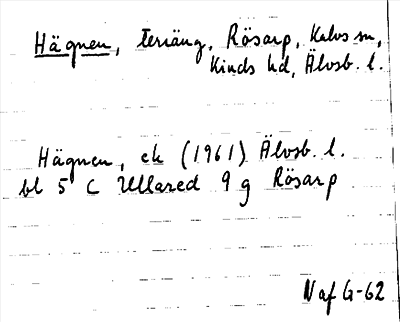 Hägnen, teriäng, Rösarp, Kalvs sn,
Kinds hd, Älvsb. l.
Hägnen, ek (1961) Älvsb. l.
bl 5 C Ullared 9 g Rösarp
Naf G-62